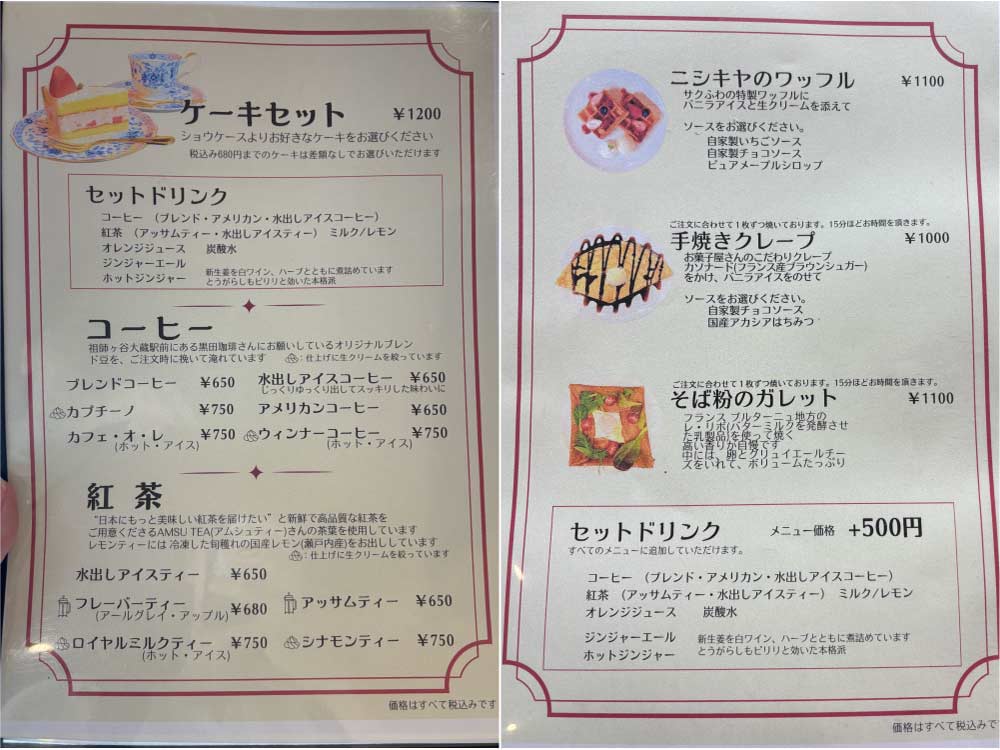 ケーキセット ¥1200
ショウケースよりお好きなケーキをお選びください
税込み680円までのケーキは差額なしでお選びいただけます
セットドリンク
コーヒー （ブレンド・アメリカン・水出しアイスコーヒー）
紅茶 （アッサムティー・水出しアイスティー） ミルク/レモン
オレンジジュース 炭酸水
ジンジャーエール
ホットジンジャー 新生姜を白ワイン、ハーブとともに煮詰めています
とうがらしもピリリと効いた本格派
コーヒー
祖師ヶ谷大蔵駅前にある黒田珈琲さんにお願いしているオリジナルブレン
ド豆を、ご注文時に挽いて淹れています ：仕上げに生クリームを絞っています
ブレンドコーヒー ¥650 水出しアイスコーヒー ¥650
じっくりゆっくり出してスッキリした味わいに
カプチーノ ¥750 アメリカンコーヒー ¥650
カフェ・オ・レ ¥750 ウィンナーコーヒー ¥750
(ホット・アイス) (ホット・アイス)
紅茶
“日本にもっと美味しい紅茶を届けたい”と新鮮で高品質な紅茶を
ご用意くださるAMSU TEA(アムシュティー)さんの茶葉を使用しています
レモンティーには 冷凍した旬穫れの国産レモン(瀬戸内産)をお出ししています
：仕上げに生クリームを絞っています
水出しアイスティー ¥650
フレーバーティー ¥680 アッサムティー ¥650
(アールグレイ・アップル)
ロイヤルミルクティー ¥750 シナモンティー ¥750
(ホット・アイス)
価格はすべて税込みです
ニシキヤのワッフル ¥1100
サクふわの特製ワッフルに
バニラアイスと生クリームを添えて
ソースをお選びください。
自家製いちごソース
自家製チョコソース
ピュアメープルシロップ
ご注文に合わせて１枚ずつ焼いております。15分ほどお時間を頂きます。
手焼きクレープ ¥1000
お菓子屋さんのこだわりクレープ
カソナード(フランス産ブラウンシュガー)
をかけ、バニラアイスをのせて
ソースをお選びください。
自家製チョコソース
国産アカシアはちみつ
ご注文に合わせて１枚ずつ焼いております。15分ほどお時間を頂きます。
そば粉のガレット ¥1100
フランス ブルターニュ地方の
レ・リボ(バターミルクを発酵させ
た乳製品)を使って焼く
高い香りが自慢です
中には、卵とグリュイエールチー
ズをいれて、ボリュームたっぷり
セットドリンク メニュー価格 +500円
すべてのメニューに追加していただけます。
コーヒー （ブレンド・アメリカン・水出しアイスコーヒー）
紅茶 （アッサムティー・水出しアイスティー） ミルク/レモン
オレンジジュース 炭酸水
ジンジャーエール 新生姜を白ワイン、ハーブとともに煮詰めています
ホットジンジャー とうがらしもピリリと効いた本格派
価格はすべて税込みで